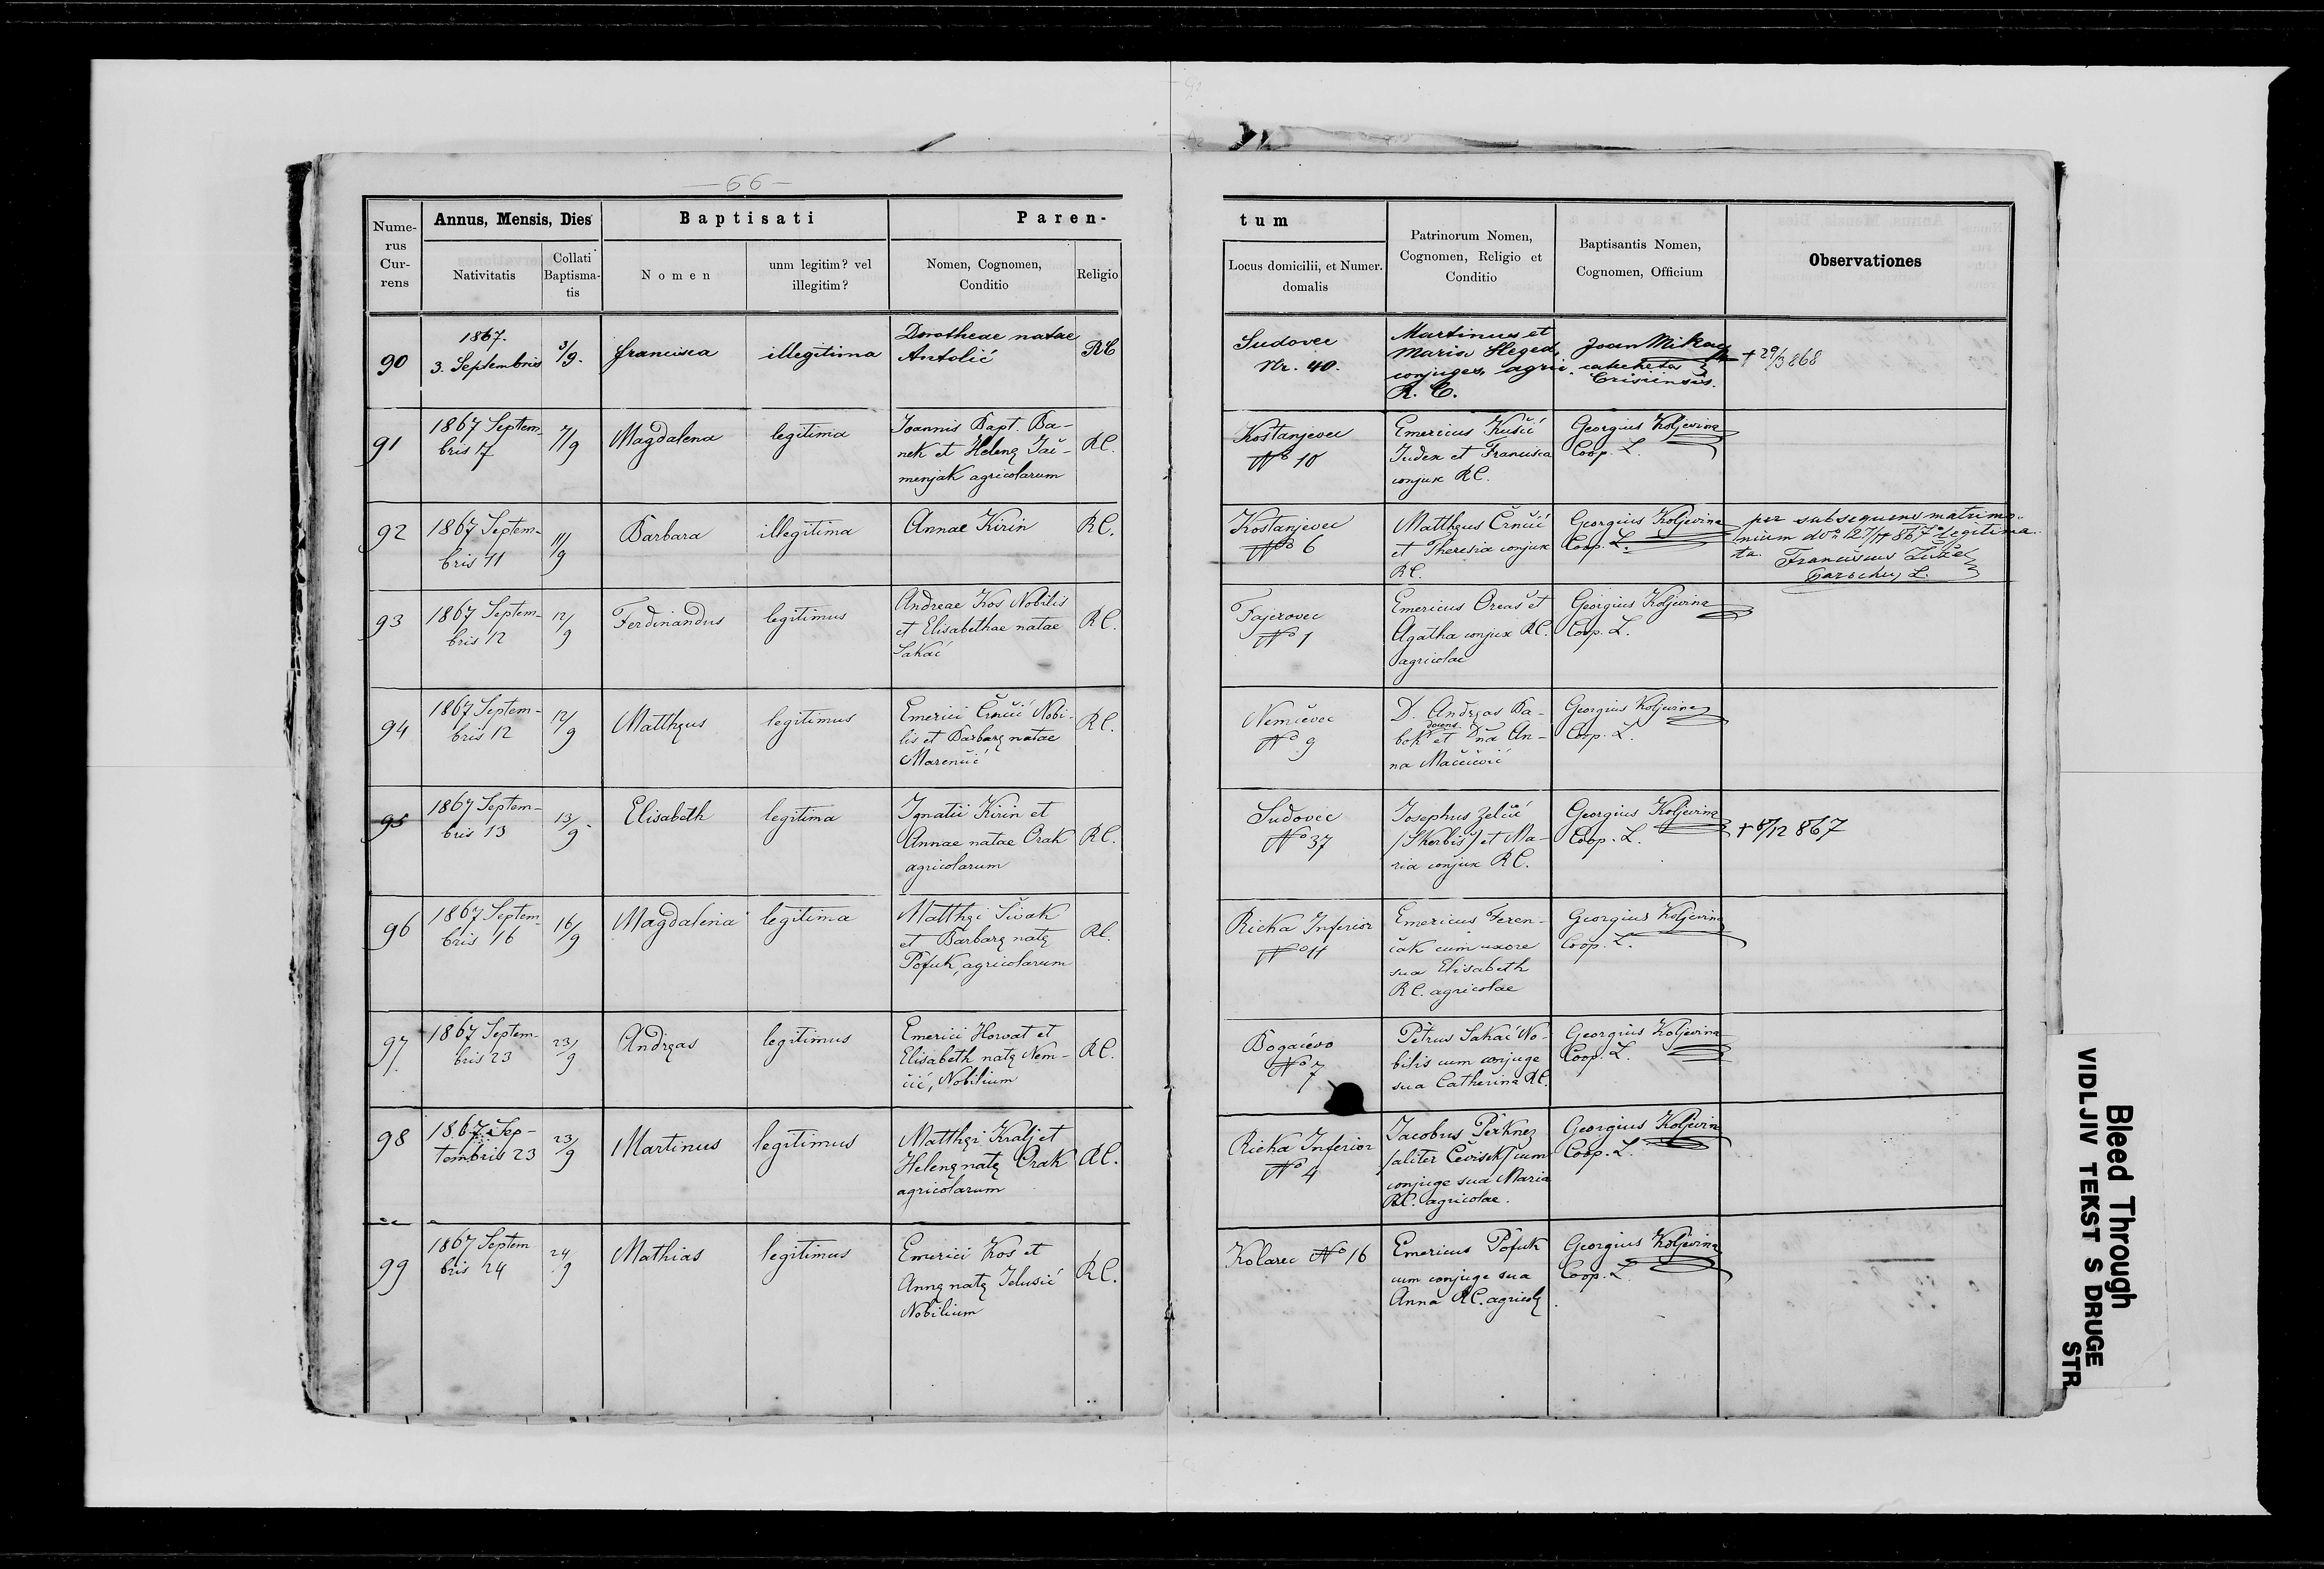 — 66 —
Annus, Mensis, Dies
Baptisati
Paren-
tum
Nume-
rus
Cur-
rens
Nativitatis
Collati
Baptisma-
tis
Nomen
unm legitim? vel
illegitim?
Nomen, Cognomen,
Conditio
Religio
Locus domicilii, et Numer.
domalis
Patrinorum Nomen,
Cognomen, Religio et
Conditio
Baptisantis Nomen,
Cognomen, Officium
Observationes
90
1867.
3. Septembris
3/9.
Francisca
illegitima
Dorotheae natae
Antolić
RC
Sudovec
Nr. 40.
Martinus et
Maria Heged.
conjuges, agri.
R. C.
Joan
catecheta
Crisiensis.
+ 29/3 868
91
1867 Septem-
bris 7
7/9
Magdalena
legitima
Joannis Bapt. Ba-
nek et Helenę Jač-
menjak agricolarum
RC.
Kostanjevec
No 10
Emericus Kušić
Judex et Francisca
conjux RC.
Georgius Koljevina
Coop. L.
92
1867 Septem-
bris 11
11/9
Barbara
illegitima
Annae Kirin
RC.
Kostanjevec
No 6
Matthęus Črnčić
et Theresia conjux
RC.
Georgius Koljevina
Coop. L.
per subsequens matrimo-
nium legitima-
ta. Franciscus
Parochus, L.
93
1867 Septem-
bris 12
12/9
Ferdinandus
legitimus
Andreae Kos Nobilis
et Elisabethae natae
Sakač
RC.
Fajerovec
No 1
Emericus Oreač et
Agatha conjux RC.
agricolae
Georgius Koljevina
Coop. L.
94
1867 Septem-
bris 12
12/9
Matthęus
legitimus
Emerici Črnčić Nobi-
lis et Barbarę natae
Marenčić
RC.
Nemčevec
No 9
D. Andręas Ba-
bok docens et Dna An-
na
Georgius Koljevina
Coop. L.
95
1867 Septem-
bris 13
13/9
Elisabeth
legitima
Ignatii Kirin et
Annae natae Orak
agricolarum
RC.
Sudovec
No 37
Josephus Zelčić
/Skorbiš/ et Ma-
ria conjux RC.
Georgius Koljevina
Coop. L.
+ 8/12 867
96
1867 Septem
bris 16
16/9
Magdalena
legitima
Matthęi Sivak
et Barbarę natę
Pofuk, agricolarum
RC.
Ricka Inferior
No 11
Emericus Feren-
čak cum uxore
sua Elisabeth
RC. agricolae
Georgius Koljevina
Coop. L.
97
1867 Septem-
bris 23
23/9
Andręas
legitimus
Emerici Horvat et
Elisabeth natę Nem-
čić, Nobilium
RC.
Bogačevo
No 7
Petrus Sakač No-
bilis cum conjuge
sua Catherina RC.
Georgius Koljevina
Coop. L.
98
1867 Sep-
tembris 23
23/9
Martinus
legitimus
Matthęi Kralj et
Helenę natę Orak
agricolarum
RC.
Ricka Inferior
No 4
Jacobus Perknez
/aliter Čevisek/ cum
conjuge sua Maria
RC. agricolae.
Georgius Koljevina
Coop. L.
99
1867 Septem
bris 24
24/9
Mathias
legitimus
Emerici Kos et
Annę natę Jelusić
Nobilium
RC.
Kolarec No 16
Emericus Pofuk
cum conjuge sua
Anna RC. agricolę.
Georgius Koljevina
Coop. L.
Bleed Through
VIDLJIV TEKST S DRUGE
STR